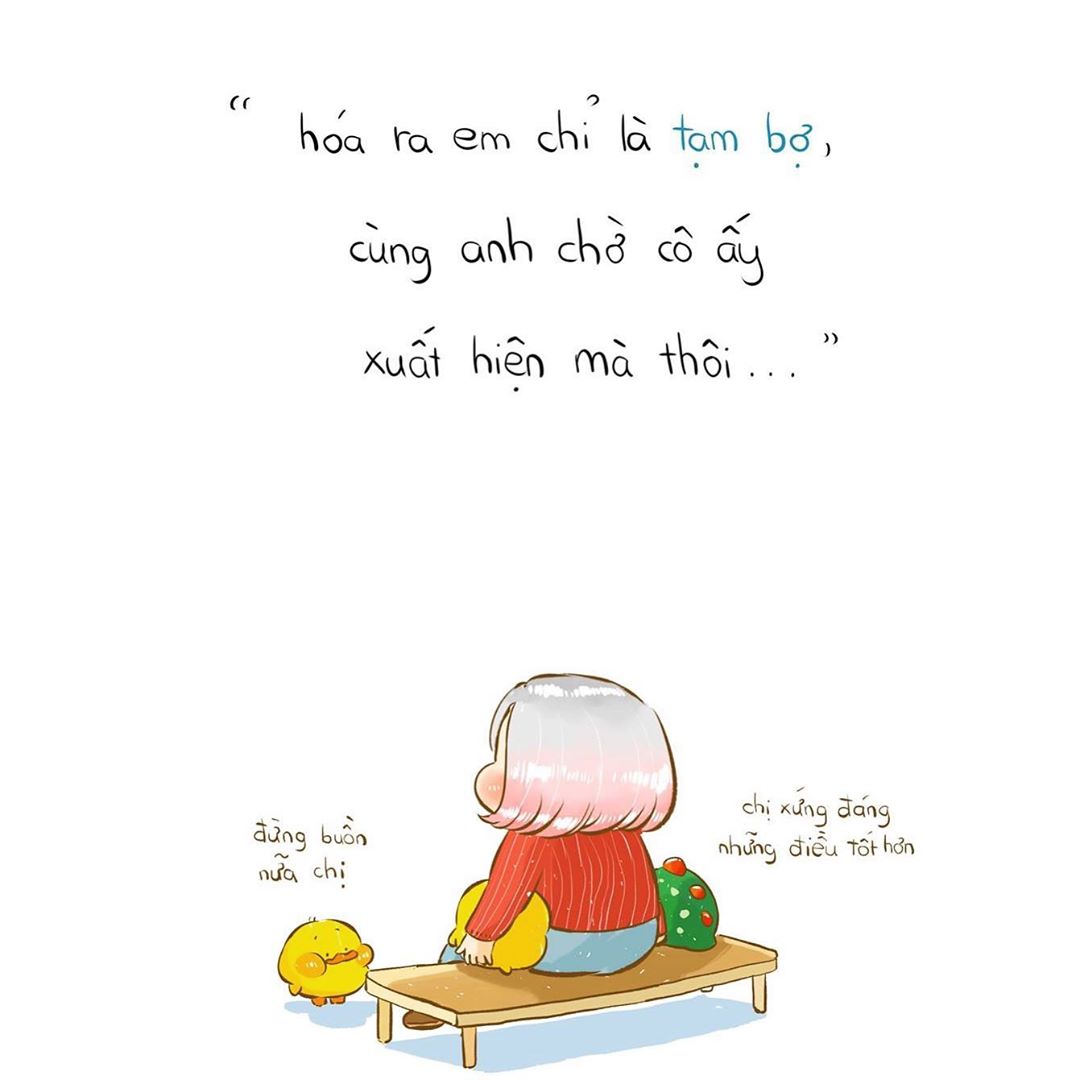 “ hóa ra em chỉ là tạm bợ,
cùng anh chờ cô ấy
xuất hiện mà thôi... ”
đừng buồn
nữa chị
chị xứng đáng
những điều tốt hơn